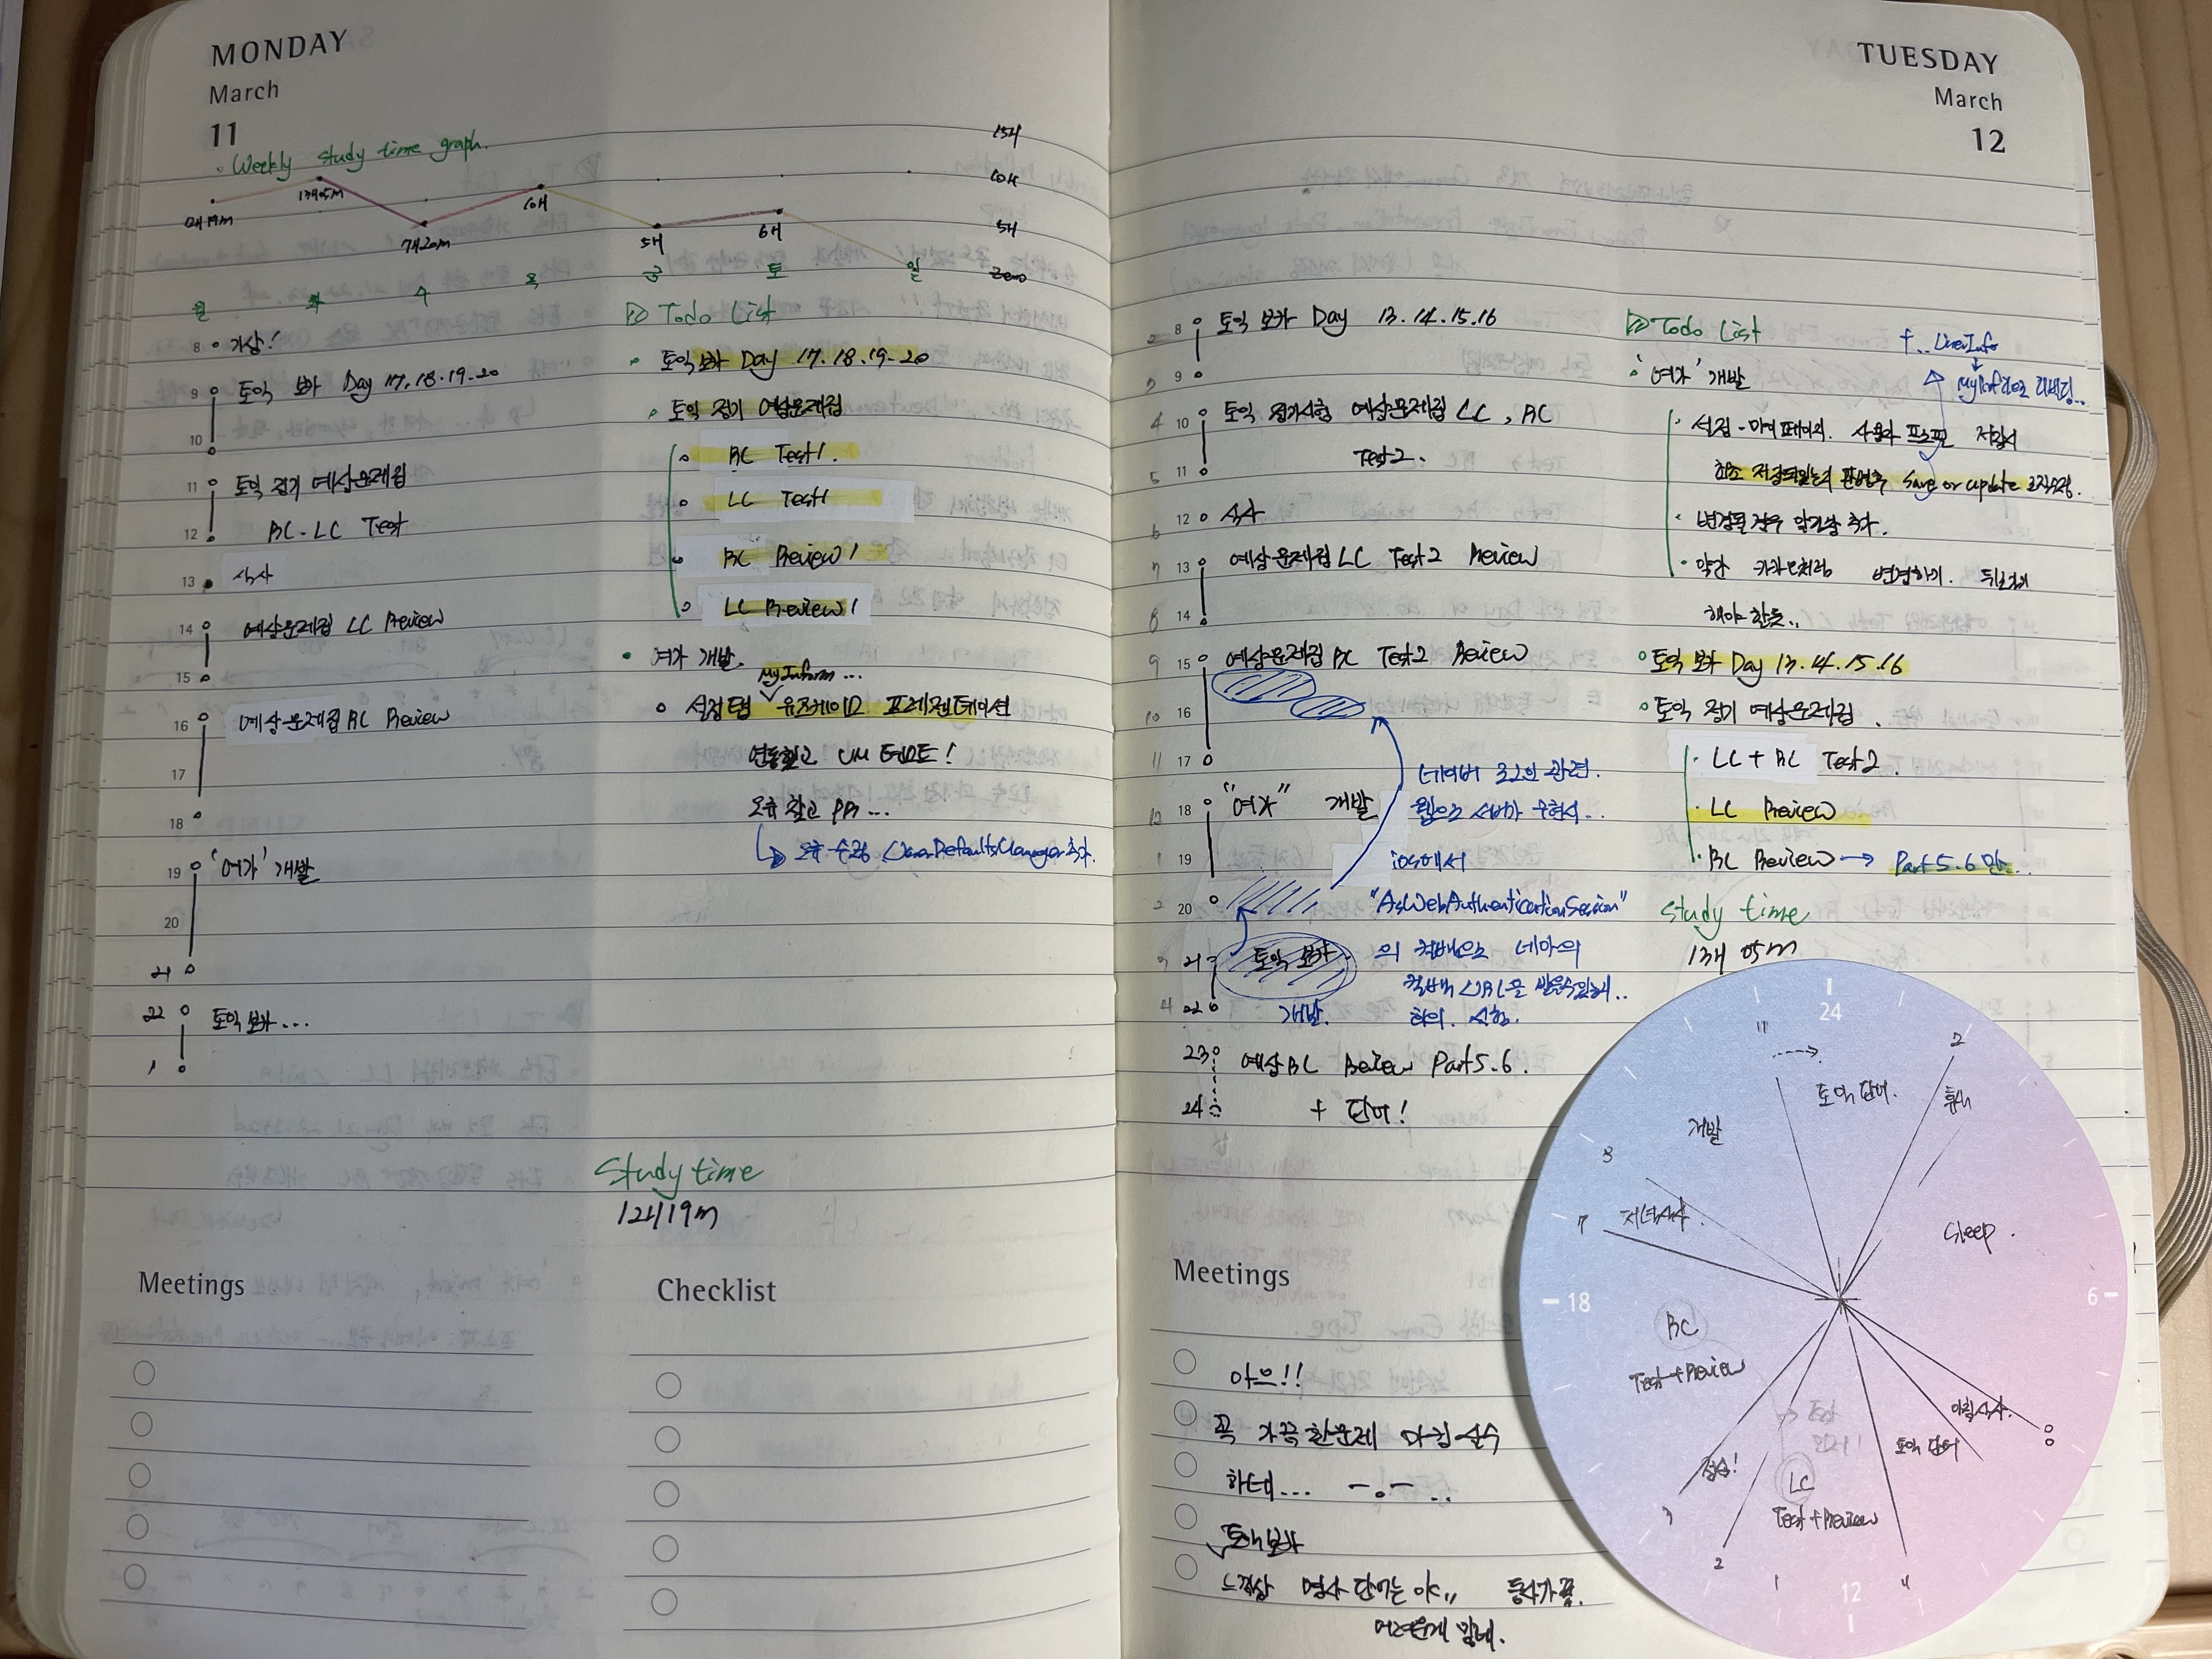 MONDAY
March
11
Weekly study time graph.
15H
10H
5H
Zero
12H19m
13H05m
7H20m
10H
5H
6H
월 화 수 목 금 토 일
8 기상!
9 토익 보카 Day 17.18.19.20
10
11 토익 정기 예상문제집
12 RC. LC Test
13 식사
14 예상문제집 LC Review
15
16 예상문제집 RC Review
17
18
19 '여가' 개발
20
21
22 토익 보카...
1
Todo List
토익 보카 Day 17.18.19.20
토익 정기 예상문제집
RC Test1.
LC Test1
RC Review1
LC Review1
여가 개발.
MyInform...
설정탭 유즈케이스 프레젠테이션
연동하고 UM 테스트!
오류 찾고 PR...
오류 수정 UserDefaultsManager 추가.
Study time
12H19m
Meetings
Checklist
TUESDAY
March
12
8 토익 보카 Day 13.14.15.16
9
10 토익 정기시험 예상문제집 LC, RC
11 Test2.
12 식사
13 예상문제집 LC Test2 Review
14
15 예상문제집 RC Test2 Review
16
17
18 "여가" 개발
19
20
21 토익 보카
22 개발.
23 예상 RC Review Part5.6.
24 + 단어!
네이버 로그인 관련.
웹으로 서버가 구현시...
iOS에서
"AsWebAuthenticationSession"
의 콜백으로 네아의
콜백 URL을 받을수있는지..
Todo List
+.. UserInfo
'여가' 개발
설정-마이페이지. 사용자 프로필 저장시
최초 저장되있는지 판별후 Save or update 로직수정.
변경될경우 알림창 추가.
약간 카카오처럼 변경하기.
해야 한듯..
토익 보카 Day 13.14.15.16
토익 정기 예상문제집.
LC + RC Test2.
LC Review
RC Review → Part5.6만..
Study time
13H 05m
24
11
2
토익 단어.
휴식
개발
8
저녁식사.
7
Sleep.
18
6
RC
Test+Review
아침식사.
8
토익 단어
점심!
LC
Test+Review
3
2
1
12
Meetings
아으!!
꼭 가끔 한문제 마킹 실수
하네... ㅡ.ㅡ..
토익 보카
느낌상 명사 단어는 쉬.. 동사가 꽤.
어려운게 많네.